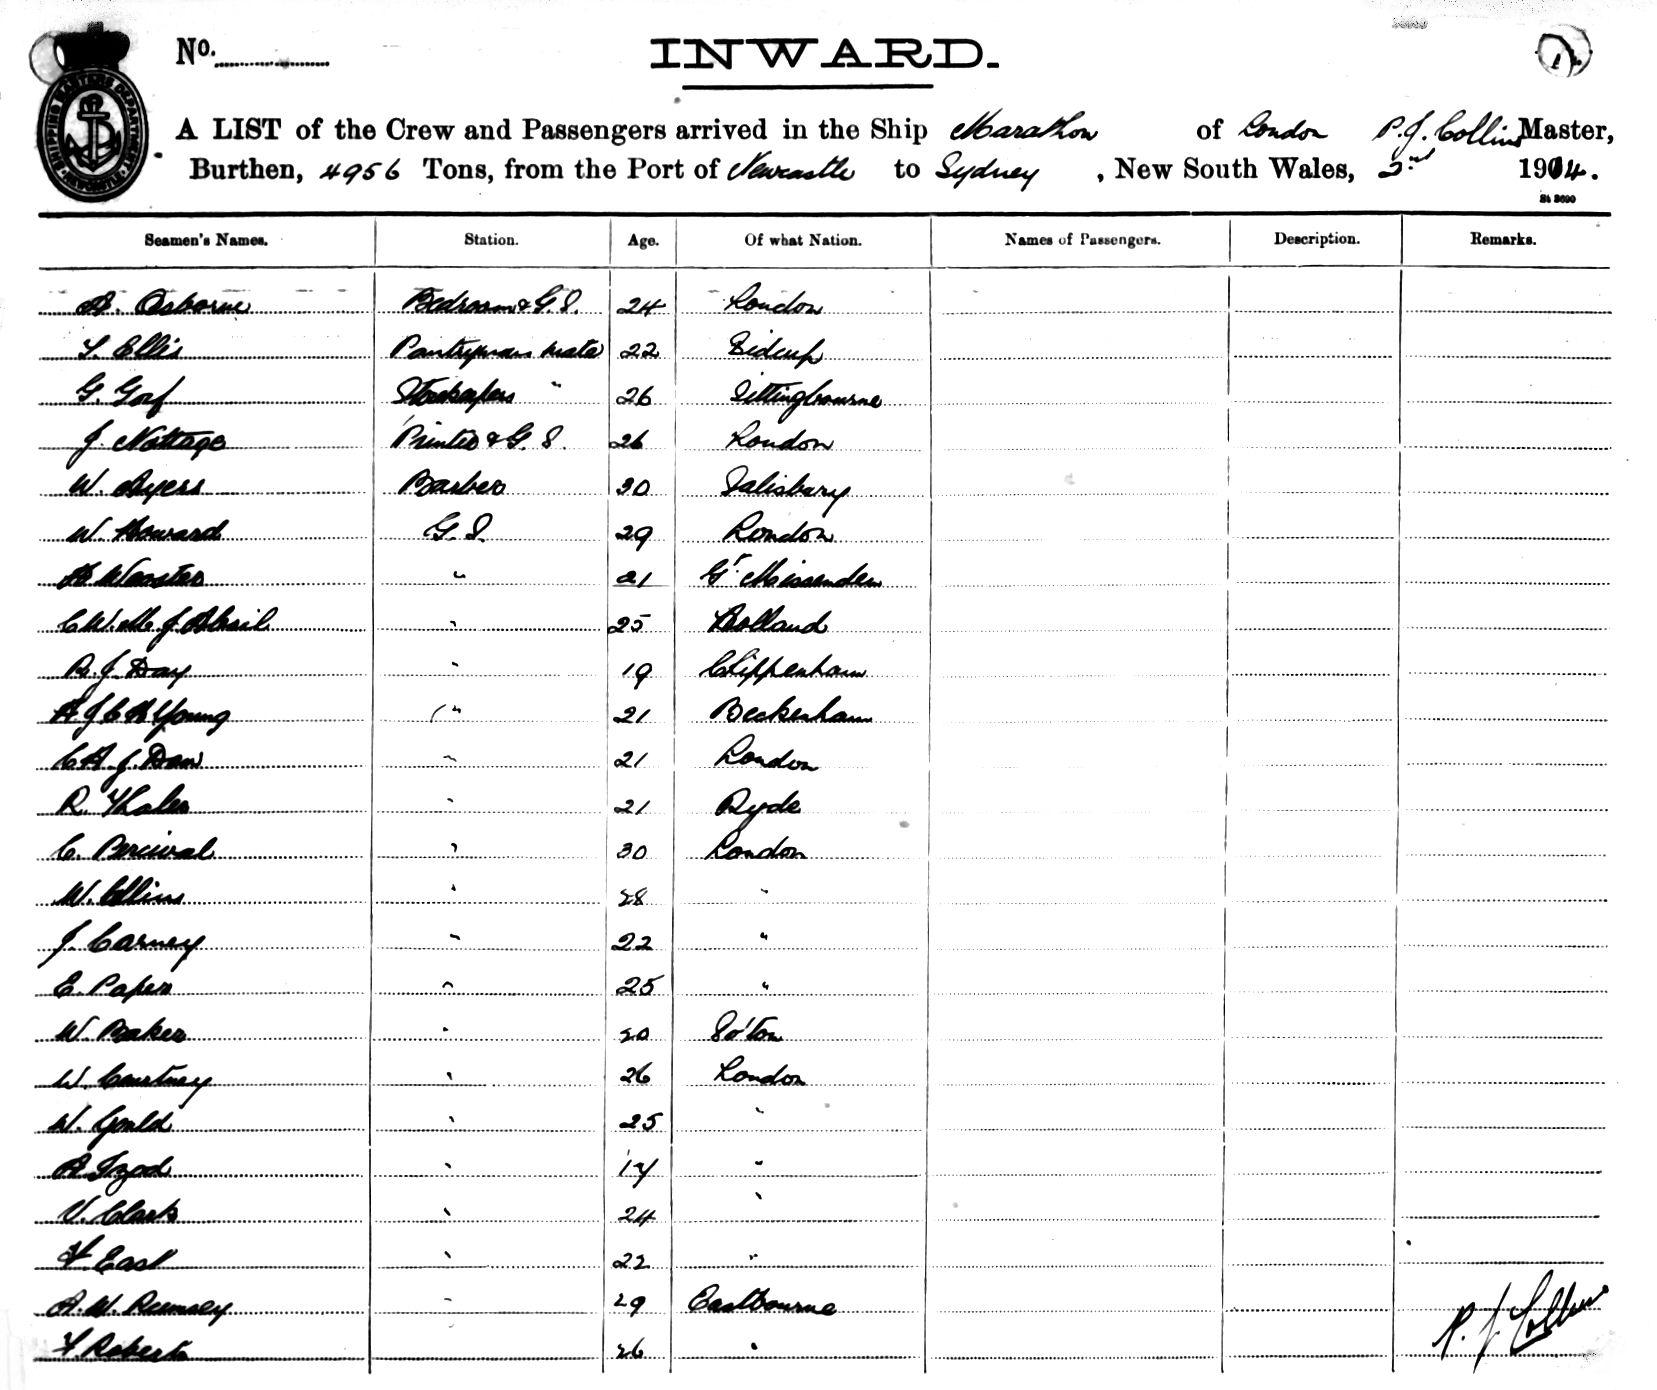 No.
INWARD.
SHIPPING MASTERS DEPARTMENT NEWCASTLE
A LIST of the Crew and Passengers arrived in the Ship Marathon of London P. J. Collins Master,
Burthen, 4956 Tons, from the Port of Newcastle to Sydney, New South Wales, 2nd 1914.
Seamen's Names. Station. Age. Of what Nation. Names of Passengers. Description. Remarks.
A. Osborne Bedroom & G.S. 24 London
T. Ellis Pantrymans Mate 22 Sidcup
G. Gorf Storekeepers " 26 Sittingbourne
J. Nottage Printer & G. S. 26 London
W. Byers Barber 30 Salisbury
W. Howard G. S. 29 London
H Wooster " 21 Gt. Missenden
C. W. M. J. " 25 Holland
R. J. Day " 19 Chippenham
A J C H Young " 21 Beckenham
C H J. Daw " 21 London
R. Thaler " 21 Ryde
C. Percival " 30 London
W. Collins " 28 "
J. Carney " 22 "
E. Paper " 25 "
W. Baker " 20 So'ton
W. Courtney " 26 London
W. Gould " 25 "
A. Izod " 17 "
V. Clark " 24 "
F East " 22 "
A. W. Rumsey " 29 Eastbourne
F. Roberts 26 "
P. J. Collins